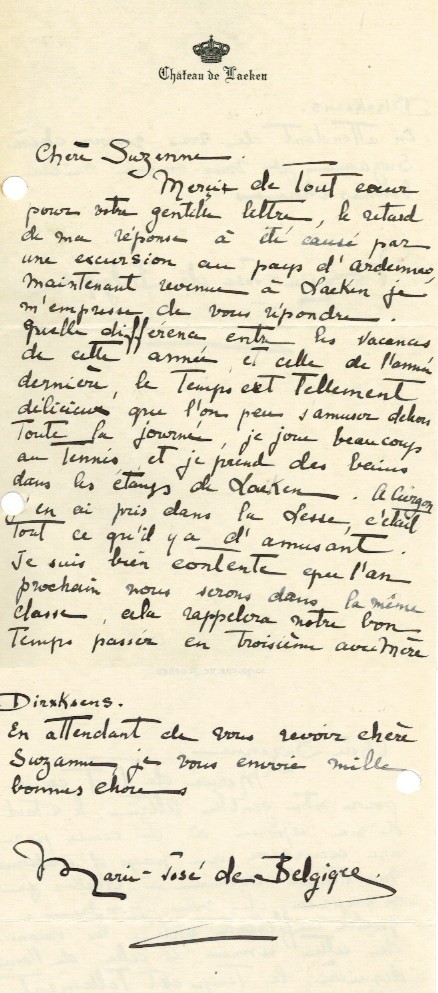 Château de Laeken
Chère Suzanne.
Merçie de tout cœur
pour votre gentille lettre, le retard
de ma réponse à été causé par
une excursion au pays d'ardennes,
maintenant revenue à Laeken je
m'empresse de vous répondre.
quelle différence entre les vacances
de cette année, et celle de l'année
dernière, le temps est tellement
délicieux que l'on peu s'amuser dehors
toute la journée, je joue beaucoup
au tennis et je prend des bains
dans les étangs de Laeken. A Ciergon
j'en ai pris dans la Lesse, c'était
tout ce qu'il y a d'amusant.
Je suis bien contente que l'an
prochain nous serons dans la même
classe, cela rappelera notre bon
temps passée en troisième avec Mère
Dirxksens.
En attendant de vous revoir chère
Suzanne, je vous envoie mille
bonnes choses
Marie-José de Belgique.